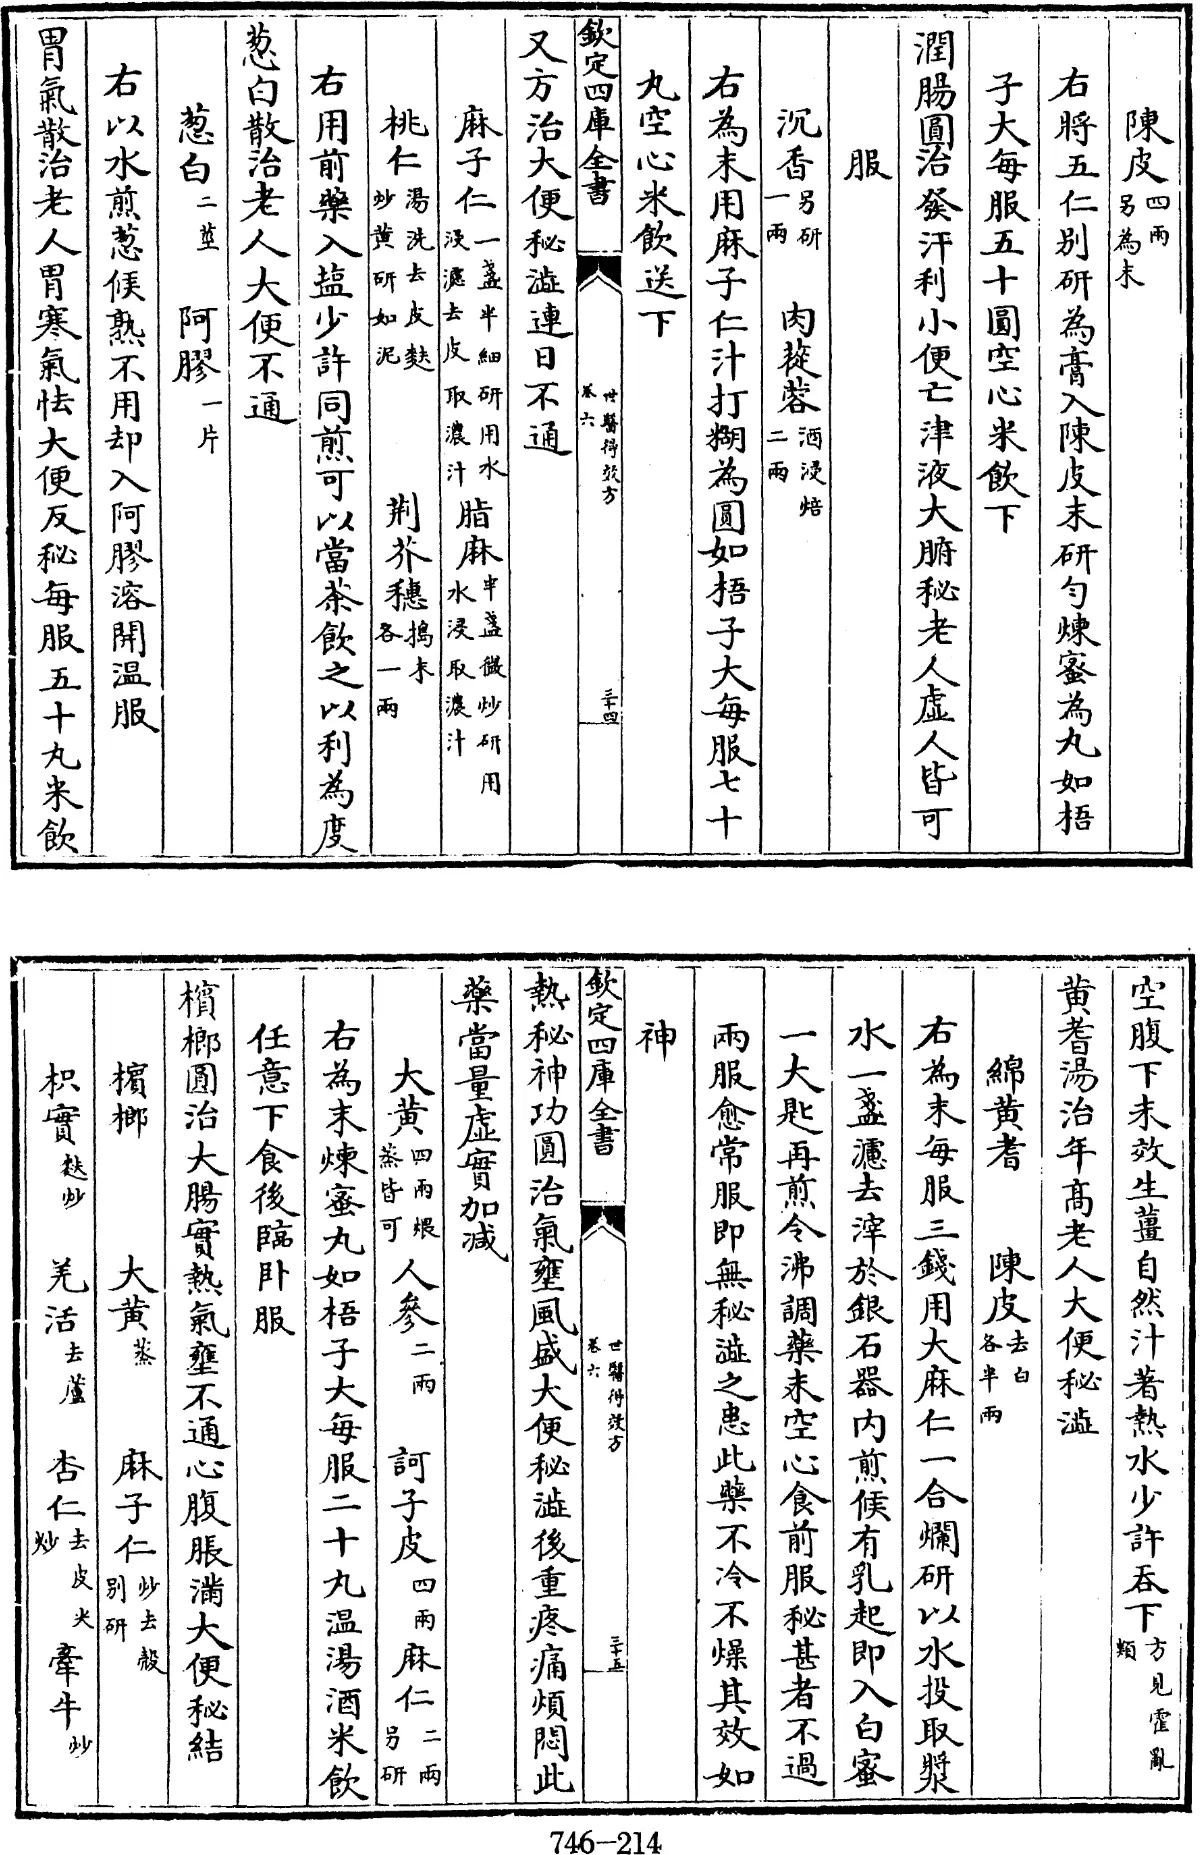 陳皮四兩另為末
右將五仁别研為膏入陳皮末研勻煉蜜為丸如梧
子大每服五十圓空心米飲下
潤腸圓治發汗利小便亡津液大腑秘老人虛人皆可
服
沉香另研一兩 肉蓯蓉酒浸焙二兩
右為末用麻子仁汁打糊為圓如梧子大每服七十
丸空心米飲送下
欽定四庫全書 世醫得效方卷六 三十四
又方治大便秘澁連日不通
麻子仁一盞半細研用水浸濾去皮取濃汁 脂麻半盞微炒研用水浸取濃汁
桃仁湯洗去皮麩炒黄研如泥 荆芥穗搗末各一兩
右用前藥入盐少許同煎可以當茶飲之以利為度
葱白散治老人大便不通
葱白二莖 阿膠一片
右以水煎葱候熟不用却入阿膠溶開温服
胃氣散治老人胃寒氣怯大便反秘每服五十丸米飲
空腹下未效生薑自然汁著熱水少許吞下方見霍亂類
黄耆湯治年髙老人大便秘澁
綿黄耆 陳皮去白各半兩
右為末每服三錢用大麻仁一合爛研以水投取漿
水一盞濾去滓於銀石器内煎候有乳起即入白蜜
一大匙再煎令沸調藥末空心食前服秘甚者不過
兩服愈常服即無秘澁之患此藥不冷不燥其效如
神
欽定四庫全書 世醫得效方卷六 三十五
熱秘神功圓治氣壅風盛大便秘澁後重疼痛煩悶此
藥當量虛實加减
大黄四兩煨蒸皆可 人參二兩 訶子皮四兩 麻仁二兩另研
右為末煉蜜丸如梧子大每服二十丸温湯酒米飲
任意下食後臨卧服
檳榔圓治大腸實熱氣壅不通心腹脹滿大便秘結
檳榔 大黄蒸 麻子仁炒去殻别研
枳實麩炒 羌活去蘆 杏仁去皮尖炒 牽牛炒
746-214